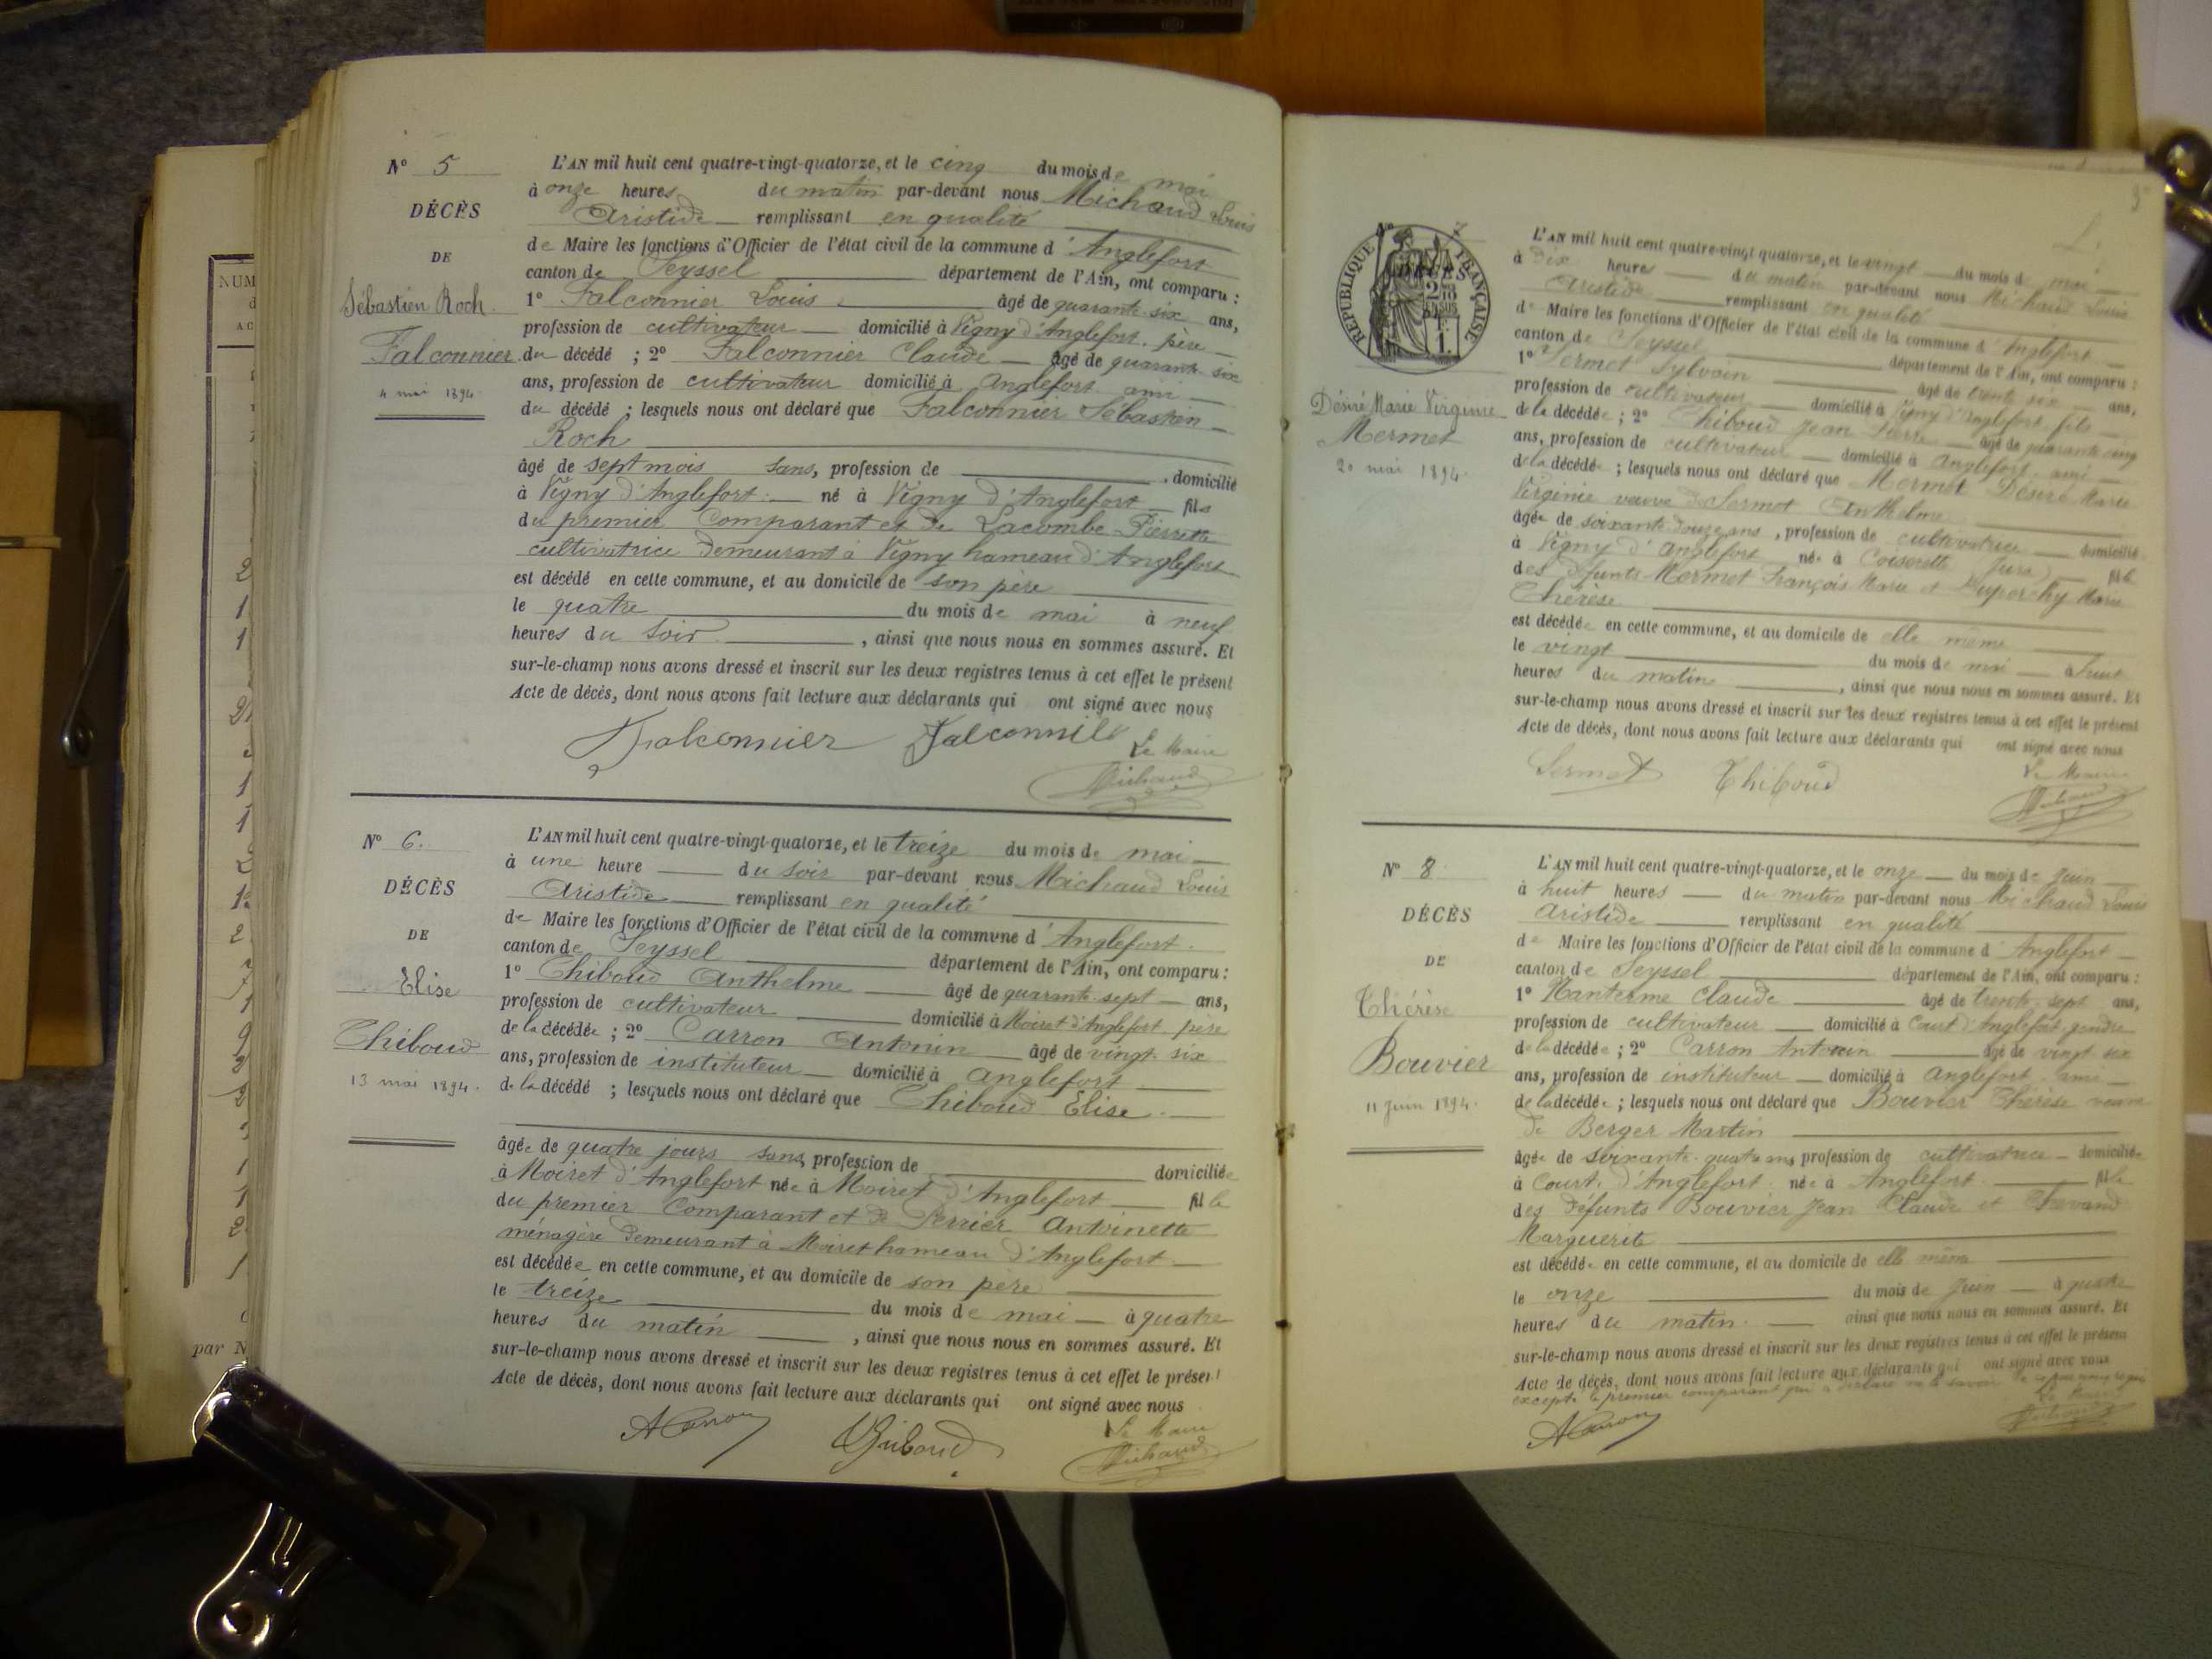 N° 5
DÉCÈS
DE
Sébastien Roch
Falconnier
4 mai 1894
L'AN mil huit cent quatre-vingt-quatorze, et le cinq du mois de mai
à onze heures du matin par-devant nous Michaud Louis
Aristide remplissant en qualité
de Maire les fonctions d'Officier de l'état civil de la commune d'Anglefort
canton de Seyssel département de l'Ain, ont comparu :
1° Falconnier Louis âgé de quarante-six ans,
profession de cultivateur domicilié à Vigny d'Anglefort. père
du décédé ; 2° Falconnier Claude âgé de quarante six
ans, profession de cultivateur domicilié à Anglefort ami
du décédé ; lesquels nous ont déclaré que Falconnier Sébastien
Roch
âgé de sept mois sans, profession de , domicilié
à Vigny d'Anglefort. né à Vigny d'Anglefort fils
du premier comparant et de Lacombe Pierrette
cultivatrice demeurant à Vigny hameau d'Anglefort
est décédé en cette commune, et au domicile de son père
le quatre du mois de mai à neuf
heures du soir , ainsi que nous nous en sommes assuré. Et
sur-le-champ nous avons dressé et inscrit sur les deux registres tenus à cet effet le présent
Acte de décès, dont nous avons fait lecture aux déclarants qui ont signé avec nous
Falconnier Falconnier Le Maire
Michaud
N° 6.
DÉCÈS
DE
Elise
Thiboud
13 mai 1894.
L'AN mil huit cent quatre-vingt-quatorze, et le treize du mois de mai
à une heure du soir par-devant nous Michaud Louis
Aristide remplissant en qualité
de Maire les fonctions d'Officier de l'état civil de la commune d'Anglefort.
canton de Seyssel département de l'Ain, ont comparu :
1° Thiboud Anthelme âgé de quarante-sept ans,
profession de cultivateur domicilié à Moiret d'Anglefort père
de la décédée ; 2° Carron Antonin âgé de vingt-six
ans, profession de instituteur domicilié à Anglefort
de la décédé ; lesquels nous ont déclaré que Thiboud Elise.
âgée de quatre jours sans, profession de domiciliée
à Moiret d'Anglefort née à Moiret d'Anglefort fille
du premier comparant et de Perrier Antoinette
ménagère demeurant à Moiret hameau d'Anglefort
est décédée en cette commune, et au domicile de son père
le treize du mois de mai à quatre
heures du matin , ainsi que nous nous en sommes assuré. Et
sur-le-champ nous avons dressé et inscrit sur les deux registres tenus à cet effet le présent
Acte de décès, dont nous avons fait lecture aux déclarants qui ont signé avec nous
A Carron Thiboud Le Maire
Michaud
N° 7
RÉPUBLIQUE FRANÇAISE
DÉCÈS
Désiré Marie Virginie
Mermet
20 mai 1894.
L'AN mil huit cent quatre-vingt quatorze, et le vingt du mois de mai
à dix heures du matin par-devant nous Michaud Louis
Aristide remplissant en qualité
de Maire les fonctions d'Officier de l'état civil de la commune d'Anglefort
canton de Seyssel département de l'Ain, ont comparu :
1° Sermet Sylvain âgé de trente six ans,
profession de cultivateur domicilié à Vigny d'Anglefort fils
de la décédée ; 2° Thiboud Jean Pierre âgé de quarante cinq
ans, profession de cultivateur domicilié à Anglefort. ami
de la décédée ; lesquels nous ont déclaré que Mermet Désiré Marie
Virginie veuve de Sermet Anthelme
âgée de soixante-douze ans, profession de cultivatrice domicilié
à Vigny d'Anglefort née à Coiserette Jura fille
des défunts Mermet François Marie et Marie
Thérèse
est décédée en cette commune, et au domicile de elle même
le vingt du mois de mai à huit
heures du matin , ainsi que nous nous en sommes assuré. Et
sur-le-champ nous avons dressé et inscrit sur les deux registres tenus à cet effet le présent
Acte de décès, dont nous avons fait lecture aux déclarants qui ont signé avec nous
Sermet Thiboud Le Maire
Michaud
N° 8
DÉCÈS
DE
Thérèse
Bouvier
11 Juin 1894.
L'AN mil huit cent quatre-vingt-quatorze, et le onze du mois de Juin
à huit heures du matin par-devant nous Michaud Louis
Aristide remplissant en qualité
de Maire les fonctions d'Officier de l'état civil de la commune d'Anglefort
canton de Seyssel département de l'Ain, ont comparu :
1° Nanterme Claude âgé de trente-sept ans,
profession de cultivateur domicilié à Court d'Anglefort gendre
de la décédée ; 2° Carron Antonin âgé de vingt-six
ans, profession de instituteur domicilié à Anglefort. ami
de la décédée ; lesquels nous ont déclaré que Bouvier Thérèse veuve
de Berger Martin
âgée de soixante-quatre ans, profession de cultivatrice domiciliée
à Court, d'Anglefort. née à Anglefort fille
des défunts Bouvier Jean Claude et
Marguerite
est décédée en cette commune, et au domicile de elle même
le onze du mois de Juin à quatre
heures du matin. ainsi que nous nous en sommes assuré. Et
sur-le-champ nous avons dressé et inscrit sur les deux registres tenus à cet effet le présent
Acte de décès, dont nous avons fait lecture aux déclarants qui ont signé avec nous
excepté le premier comparant qui a déclaré ne le savoir
Le Maire
A Carron Michaud